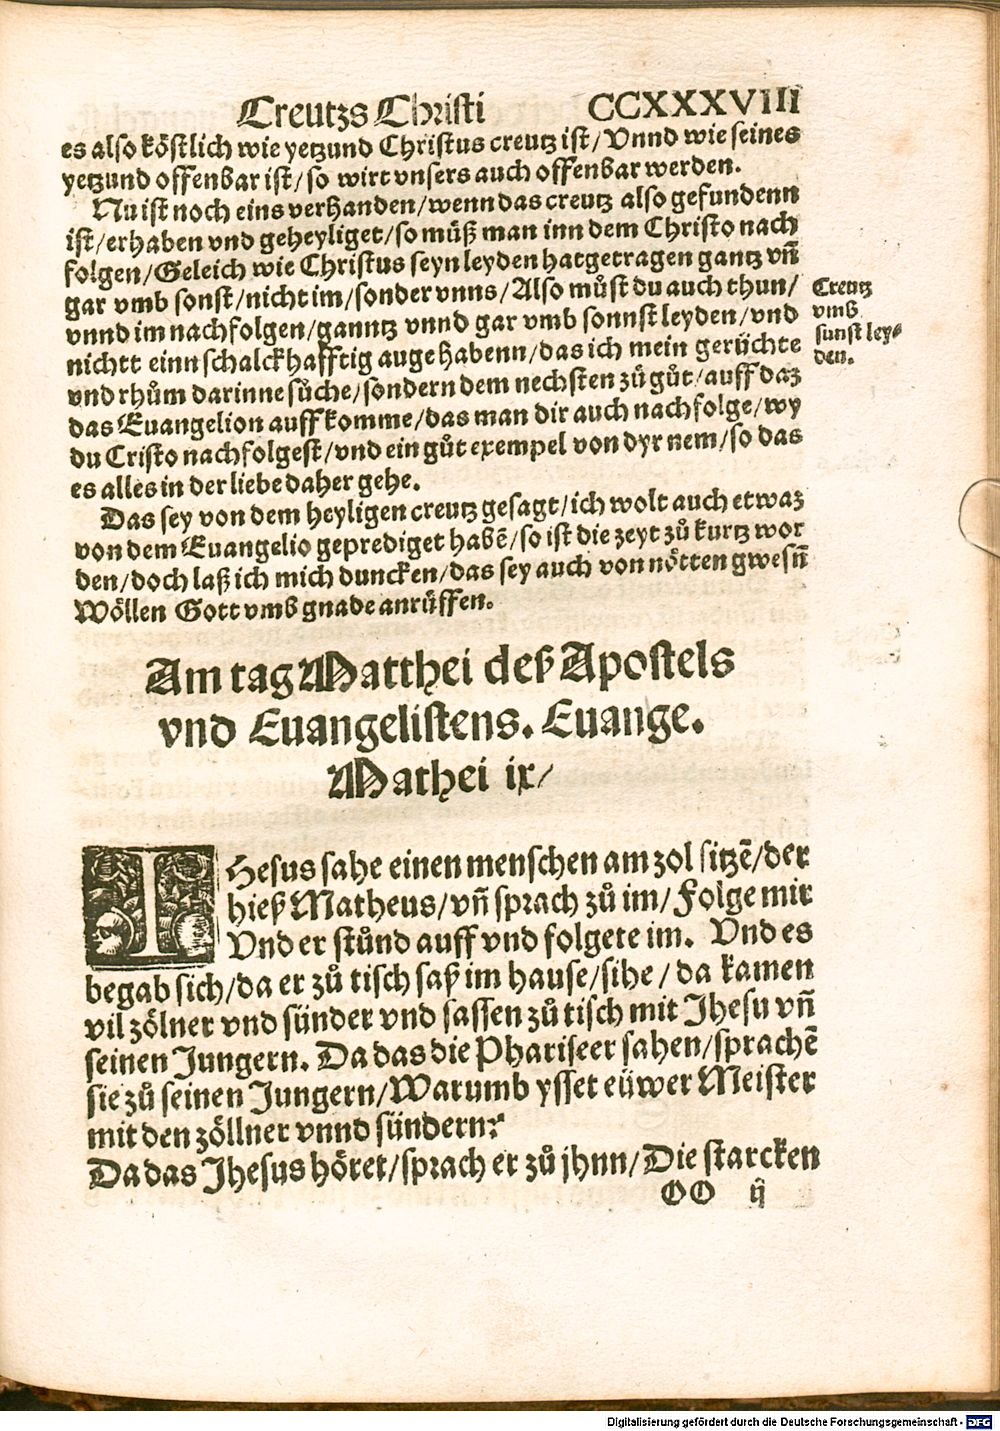 Creutzs Christi CCXXXVIII
es also köstlich wie yetzund Christus creutz ist/ Unnd wie seines
yetzund offenbar ist/ so wirt vnsers auch offenbar werden.
Nu ist noch eins verhanden/ wenn das creutz also gefundenn
ist/ erhaben vnd geheyliget/ so müß man inn dem Christo nach
folgen/ Geleich wie Christus seyn leyden hat getragen gantz vñ
gar vmb sonst/ nicht im/ sonder vnns/ Also můst du auch thun/
vnnd im nachfolgen/ ganntz vnnd gar vmb sonnst leyden/ vnd
nichtt einn schalckhafftig auge habenn/ das ich mein gerüchte
vnd rhům darinne sůche/ sondern dem nechsten zů gůt/ auff daz
das Euangelion auff komme/ das man dir auch nachfolge/ wy
du Cristo nachfolgest/ vnd ein gůt exempel von dyr nem/ so das
es alles in der liebe daher gehe.
Das sey von dem heyligen creutz gesagt/ ich wolt auch etwaz
von dem Euangelio geprediget habẽ/ so ist die zeyt zů kurtz wor
den/ doch laß ich mich duncken/ das sey auch von nötten gwesñ
Wöllen Gott vmb gnade anrüffen.
Creutz
vmb
sunst ley-
den.
Am tag Matthei deß Apostels
vnd Euangelistens. Euange.
Mathei ix/
IHesus sahe einen menschen am zol sitzẽ/ der
hieß Matheus/ vñ sprach zů im/ Folge mir
Vnd er stůnd auff vnd folgete im. Vnd es
begab sich/ da er zů tisch saß im hause/ sihe/ da kamen
vil zölner vnd sünder vnd sassen zů tisch mit Jhesu vñ
seinen Jungern. Da das die Phariseer sahen/ sprachẽ
sie zů seinen Jungern/ Warumb ysset eüwer Meister
mit den zöllner vnnd sündern?
Da das Jhesus höret/ sprach er zů jhnn/ Die starcken
OO ij
Digitalisierung gefördert durch die Deutsche Forschungsgemeinschaft - DFG